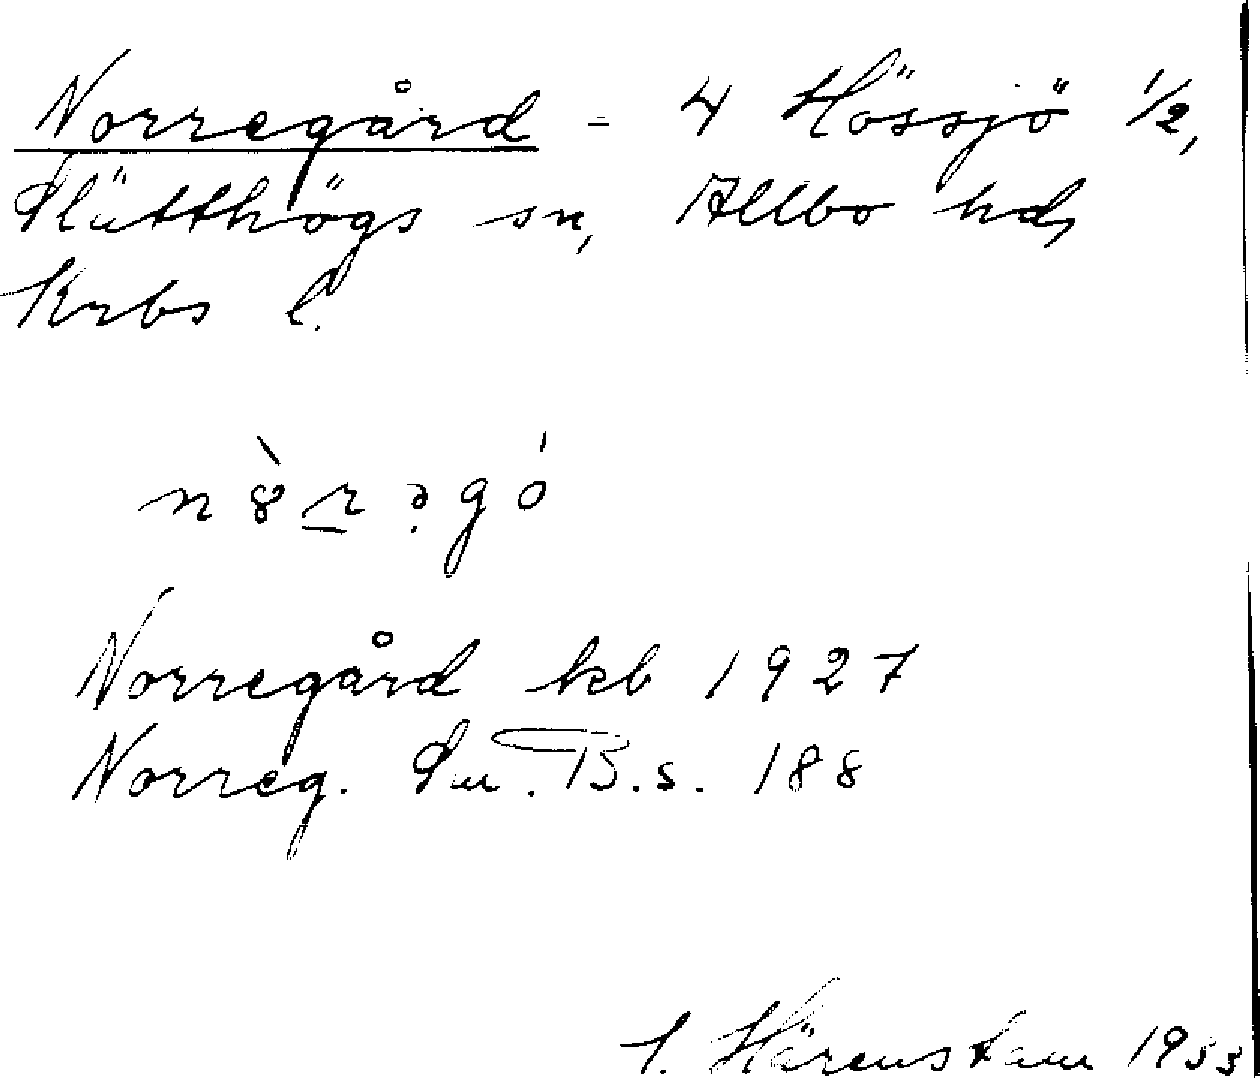 Norregård - 4 Hössjö 1/2,
Slätthögs sn, Allbo hd,
Krbs l.
Norregård kb 1927
Norreg. Sm. B. s. 188
Härenstam 1933